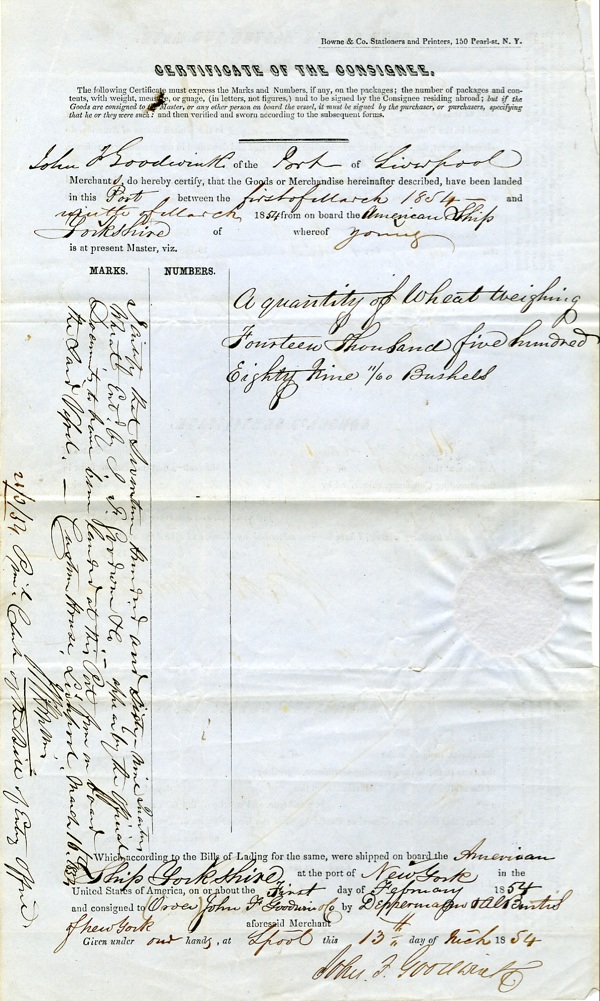 Bowne & Co. Stationers and Printers, 150 Pearl-st. N. Y.
CERTIFICATE OF THE CONSIGNEE.
The following Certificate must express the Marks and Numbers, if any, on the packages; the number of packages and con-
tents, with weight, measure, or guage, (in letters, not figures,) and to be signed by the Consignee residing abroad; but if the
Goods are consigned to Master, or any other person on board the vessel, it must be signed by the purchaser, or purchasers, specifying
that he or they were such: and then verified and sworn according to the subsequent forms.
John F Goodwin & Co of the Port of Liverpool
Merchants, do hereby certify, that the Goods or Merchandise hereinafter described, have been landed
in this Port between the first of March 1854 and
ninth of March 1854 from on board the American Ship
Yorkshire of whereof Young
is at present Master, viz.
MARKS. NUMBERS.
A quantity of Wheat Weighing
Fourteen Thousand five hundred
Eighty Nine 11/60 Bushels
I certify that Seventeen Hundred and Sixty Nine Quarters
Wheat Entd. by J. F. Goodwin & Co. appear by the Official
Documents to have been landed at this Port from on board
the said Vessel. — Custom House, Liverpool, March 16 1854
21/3/54
Which according to the Bills of Lading for the same, were shipped on board the American
Ship Yorkshire at the port of New York in the
United States of America, on or about the First day of February 1854
and consigned to (Order) John F Goodwin & Co by
of New York aforesaid Merchant
Given under our hands, at Lpool this 13th day of Mch 1854
John F. Goodwin & Co